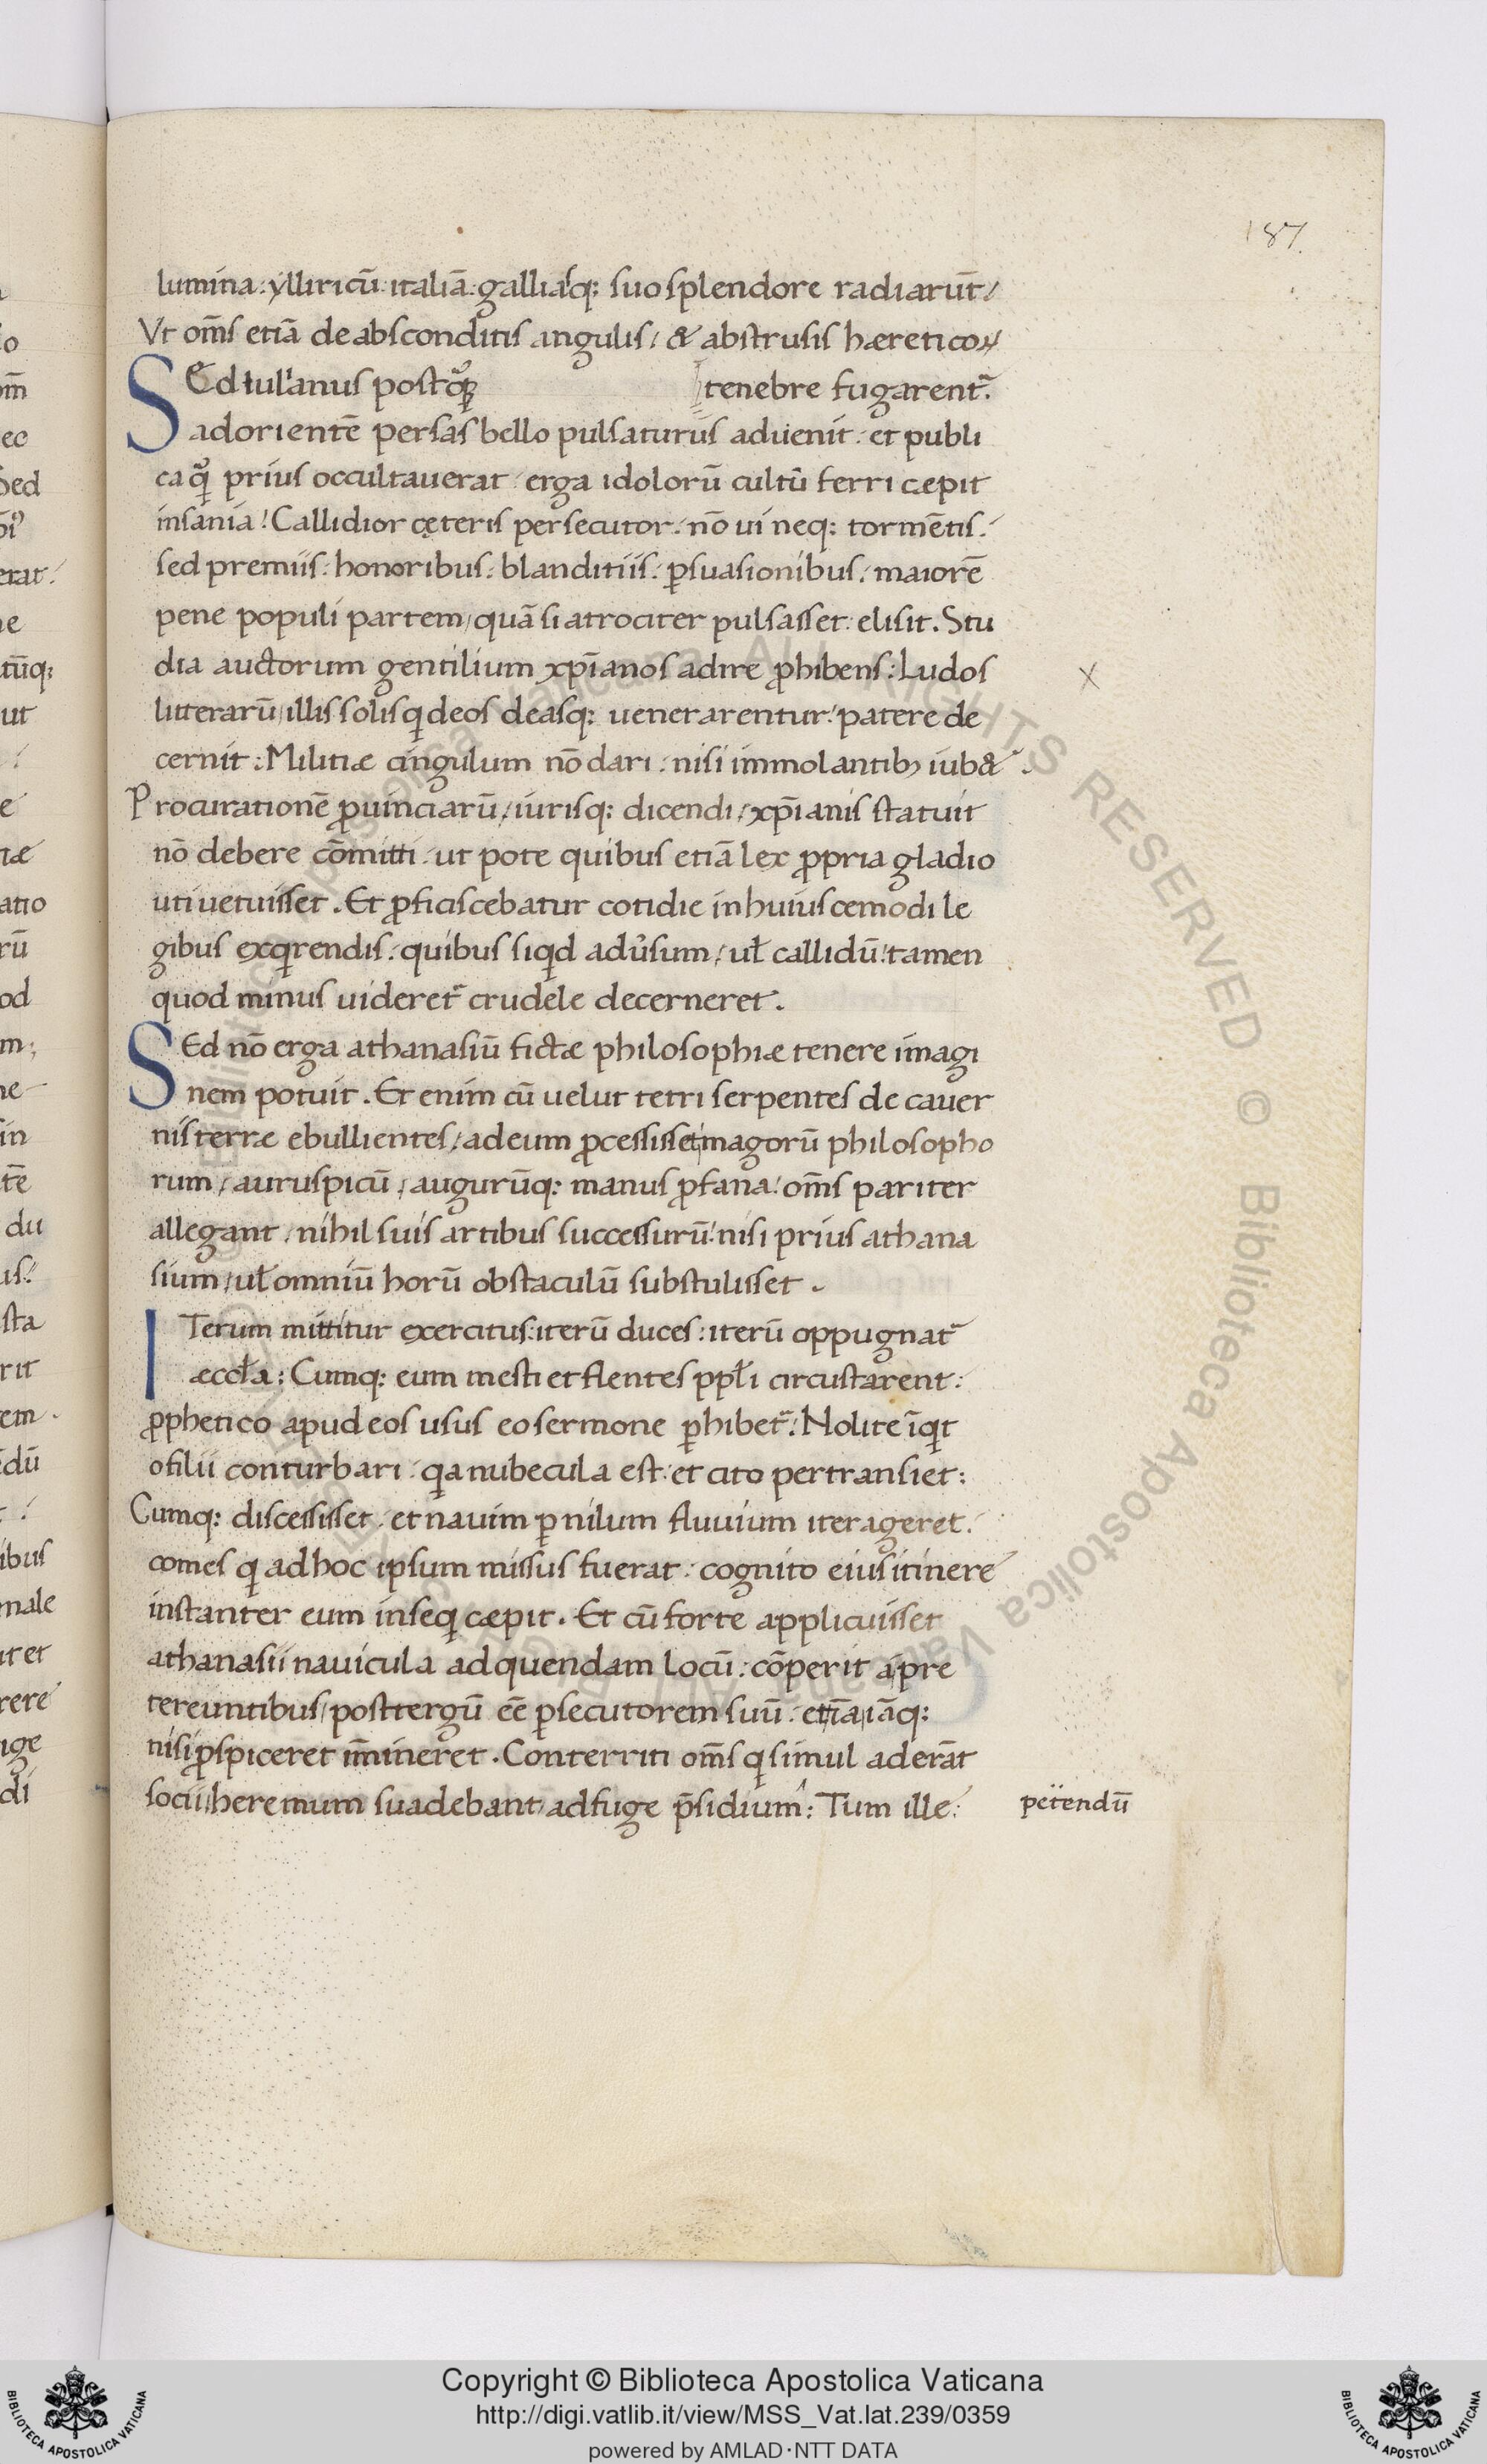 187
lumina: ylliricū: italiā: galliasq: suo splendore radiarūt/
Vt om̄s etiā de absconditis angulis/ & abstrusis hæreticoꝝ
SEd iulianus postqͣꝫ tenebre fugarentᷣ.
ad orientē persas bello pulsaturus aduenit: et publi
ca qͣ prius occultauerat: erga idolorū cultū ferri cæpit
insania! Callidior cęteris persecutor: nō ui neq: tormētis:
sed premiis: honoribus: blanditiis: ꝑsuasionibus: maiorē
pene populi partem/ quā si atrociter pulsasset elisit. Stu
dia auctorum gentilium xp̄ianos adire ꝓhibens: Ludos
litterarū/ illis solis qͥ deos deasq: uenerarentur! patere de
cernit: Militiæ cingulum nō dari: nisi immolantibꝫ iub&.
Procurationē ꝓuinciarū/ iurisq: dicendi/ xp̄ianis statuit
nō debere cōmitti: ut pote quibus etiā lex ꝓpria gladio
uti uetuisset. Et ꝓficiscebatur cotidie in huiuscemodi le
gibus exqͥrendis: quibus siqͥd adu͛sum/ uꝉ callidū! tamen
quod minus uideretᷣ crudele decerneret.
SEd nō erga athanasiū fictæ philosophiæ tenere imagi
nem potuit. Et enim cū uelut tetri serpentes de cauer
nis terræ ebullientes/ ad eum ꝓcessisset magorū philosopho
rum/ auruspicū/ augurūq: manus ꝓfana! om̄s pariter
allegant/ nihil suis artibus successurū! nisi prius athana
sium/ uꝉ omniū horū obstaculū substulisset.
ITerum mittitur exercitus: iterū duces: iterū oppugnatᷣ
æccꝉa: Cumq: eum mesti et flentes ppꝉi circūstarent:
ꝓphetico apud eos usus eo sermone ꝑhibetᷣ: Nolite īqͥt
o filii conturbari: qͥa nubecula est: et cito pertransiet:
Cumq: discessisset: et nauim ꝑ nilum fluuium iter ageret:
comes qͥ ad hoc ipsum missus fuerat: cognito eius itinere
instanter eum inseqͥ cæpit. Et cū forte applicuisset
athanasii nauicula ad quendam locū: cōperit a pre
tereuntibus/ post tergū ēē ꝑsecutorem suū: etiā iāq:
nisi ꝓspiceret īmineret. Conterriti om̄s qͥ simul aderāt
socii/ heremum suadebant/ ad fuge p̄sidium: Tum ille: petendū
Copyright © Biblioteca Apostolica Vaticana
http://digi.vatlib.it/view/MSS_Vat.lat.239/0359
powered by AMLAD·NTT DATA